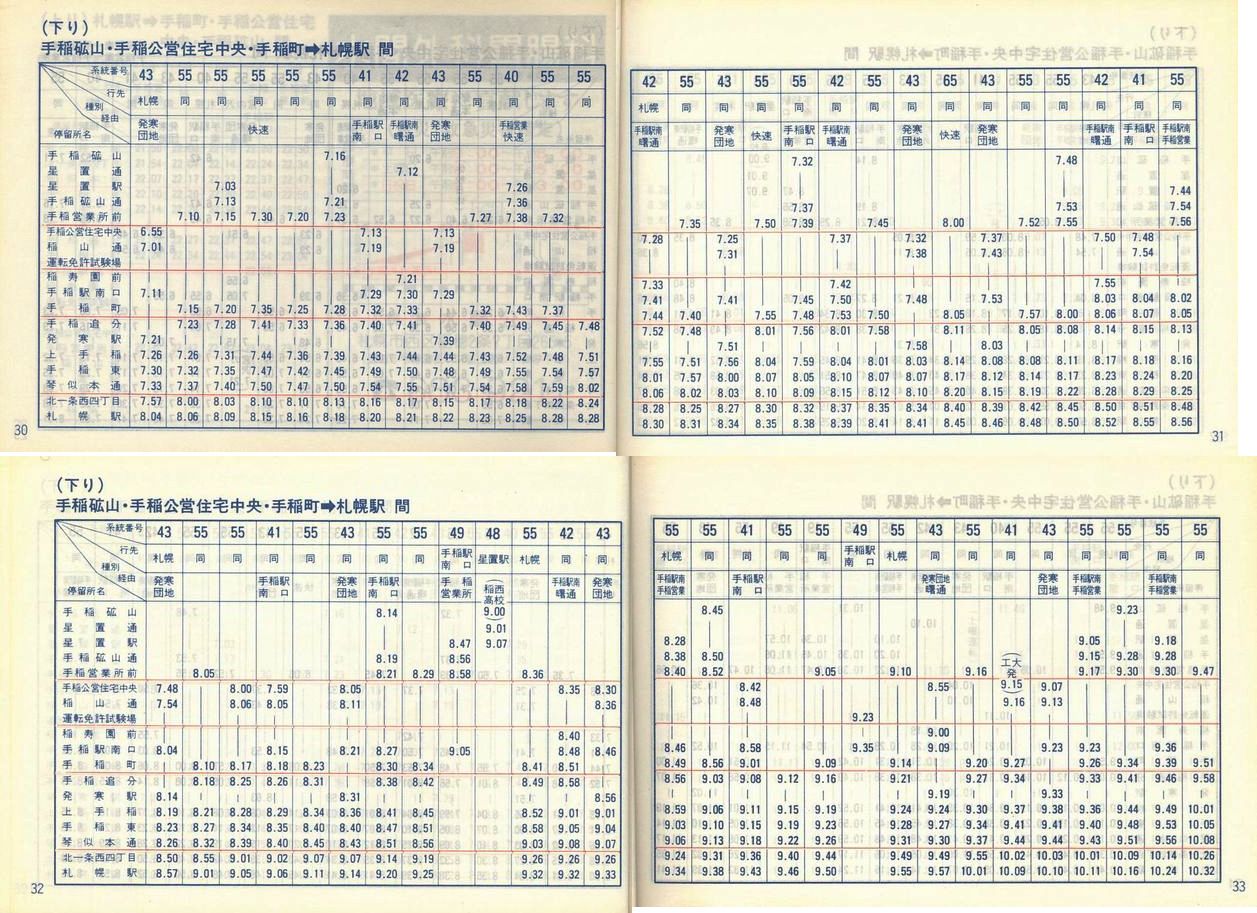 (下り)
手稲砿山・手稲公営住宅中央・手稲町➡札幌駅 間
系統番号 43 55 55 55 55 55 41 42 43 55 40 55 55
行先 札幌 同 同 同 同 同 同 同 同 同 同 同 同
種別
経由 発寒団地 快速 手稲駅南口 手稲駅南曙通 発寒団地 手稲営業快速
停留所名
手稲砿山 7.16
星置通 7.12
星置駅 7.03 7.26
手稲砿山通 7.13 7.21 7.36
手稲営業所前 7.10 7.15 7.30 7.20 7.23 7.27 7.38 7.32
手稲公営住宅中央 6.55 7.13 7.13
稲山通 7.01 7.19 7.19
運転免許試験場
稲寿園前 7.21
手稲駅南口 7.11 7.29 7.30 7.29
手稲町 7.15 7.20 7.35 7.25 7.28 7.32 7.33 7.32 7.43 7.37
手稲追分 7.23 7.28 7.41 7.33 7.36 7.40 7.41 7.40 7.49 7.45 7.48
発寒駅 7.21 7.39
上手稲 7.26 7.26 7.31 7.44 7.36 7.39 7.43 7.44 7.44 7.43 7.52 7.48 7.51
手稲東 7.30 7.32 7.35 7.47 7.42 7.45 7.49 7.50 7.48 7.49 7.55 7.54 7.57
琴似本通 7.33 7.37 7.40 7.50 7.47 7.50 7.54 7.55 7.51 7.54 7.58 7.59 8.02
北一条西四丁目 7.57 8.00 8.03 8.10 8.10 8.13 8.16 8.17 8.15 8.17 8.18 8.22 8.24
札幌駅 8.04 8.06 8.09 8.15 8.16 8.18 8.20 8.21 8.22 8.23 8.25 8.28 8.28
30
42 55 43 55 55 42 55 43 65 43 55 55 42 41 55
札幌 同 同 同 同 同 同 同 同 同 同 同 同 同 同
手稲駅南曙通 発寒団地 快速 手稲駅南口 手稲駅南曙通 発寒団地 快速 発寒団地 手稲駅南曙通 手稲駅南口
7.32 7.48
7.44
7.37 7.53 7.54
7.35 7.50 7.39 7.45 8.00 7.52 7.55 7.56
7.28 7.25 7.37 7.32 7.37 7.50 7.48
7.31 7.38 7.43 7.54
7.33 7.42 7.55
7.41 7.41 7.45 7.50 7.48 7.53 8.03 8.04 8.02
7.44 7.40 7.55 7.48 7.53 7.50 8.05 7.57 8.00 8.06 8.07 8.05
7.52 7.48 8.01 7.56 8.01 7.58 8.11 8.05 8.08 8.14 8.15 8.13
7.51 7.58 8.03
7.55 7.51 7.56 8.04 7.59 8.04 8.01 8.03 8.14 8.08 8.08 8.11 8.17 8.18 8.16
8.01 7.57 8.00 8.07 8.05 8.10 8.07 8.07 8.17 8.12 8.14 8.17 8.23 8.24 8.20
8.06 8.02 8.03 8.10 8.09 8.15 8.12 8.10 8.20 8.15 8.19 8.22 8.28 8.29 8.25
8.28 8.25 8.27 8.30 8.32 8.37 8.35 8.34 8.40 8.39 8.42 8.45 8.50 8.51 8.48
8.30 8.31 8.34 8.35 8.38 8.39 8.41 8.41 8.45 8.46 8.48 8.50 8.52 8.55 8.56
31
(下り)
手稲砿山・手稲公営住宅中央・手稲町➡札幌駅 間
系統番号 43 55 55 41 55 43 55 55 49 48 55 42 43
行先 札幌 同 同 同 同 同 同 同 手稲駅南口 星置駅 札幌 同 同
種別
経由 発寒団地 手稲駅南口 発寒団地 手稲駅南口 手稲営業所 (稲西高校) 手稲駅南曙通 発寒団地
停留所名
手稲砿山 8.14 9.00
星置通 9.01
星置駅 8.47 9.07
手稲砿山通 8.19 8.56
手稲営業所前 8.05 8.21 8.29 8.58 8.36
手稲公営住宅中央 7.48 8.00 7.59 8.05 8.35 8.30
稲山通 7.54 8.06 8.05 8.11 8.36
運転免許試験場
稲寿園前 8.40
手稲駅南口 8.04 8.15 8.21 8.27 9.05 8.48 8.46
手稲町 8.10 8.17 8.18 8.23 8.30 8.34 8.41 8.51
手稲追分 8.18 8.25 8.26 8.31 8.38 8.42 8.49 8.58
発寒駅 8.14 8.31 8.56
上手稲 8.19 8.21 8.28 8.29 8.34 8.36 8.41 8.45 8.52 9.01 9.01
手稲東 8.23 8.27 8.34 8.35 8.40 8.40 8.47 8.51 8.58 9.05 9.04
琴似本通 8.26 8.32 8.39 8.40 8.45 8.43 8.51 8.56 9.03 9.08 9.07
北一条西四丁目 8.50 8.55 9.01 9.02 9.07 9.07 9.14 9.19 9.26 9.26 9.26
札幌駅 8.57 9.01 9.05 9.06 9.11 9.14 9.20 9.25 9.32 9.32 9.33
32
55 55 41 55 55 49 55 43 55 41 43 55 55 55 55
札幌 同 同 同 同 手稲駅南口 札幌 同 同 同 同 同 同 同 同
手稲駅南手稲営業 手稲駅南口 発寒団地手稲駅南曙通 発寒団地 手稲駅南手稲営業 手稲駅南手稲営業
8.45 9.23
8.28 9.05 9.18
8.38 8.50 9.15 9.28 9.28
8.40 8.52 9.05 9.10 9.16 (工大発) 9.17 9.30 9.30 9.47
8.42 8.55 9.15 9.07
8.48 9.16 9.13
9.23
9.00
8.46 8.58 9.35 9.09 9.23 9.23 9.36
8.49 8.56 9.01 9.09 9.14 9.20 9.27 9.26 9.34 9.39 9.51
8.56 9.03 9.08 9.12 9.16 9.21 9.27 9.34 9.33 9.41 9.46 9.58
9.19 9.33
8.59 9.06 9.11 9.15 9.19 9.24 9.24 9.30 9.37 9.38 9.36 9.44 9.49 10.01
9.03 9.10 9.15 9.19 9.23 9.28 9.27 9.34 9.41 9.41 9.40 9.48 9.53 10.05
9.06 9.13 9.18 9.22 9.26 9.31 9.30 9.37 9.44 9.44 9.43 9.51 9.56 10.08
9.24 9.31 9.36 9.40 9.44 9.49 9.49 9.55 10.02 10.03 10.01 10.09 10.14 10.26
9.34 9.38 9.43 9.46 9.50 9.55 9.57 10.01 10.09 10.10 10.11 10.16 10.24 10.32
33